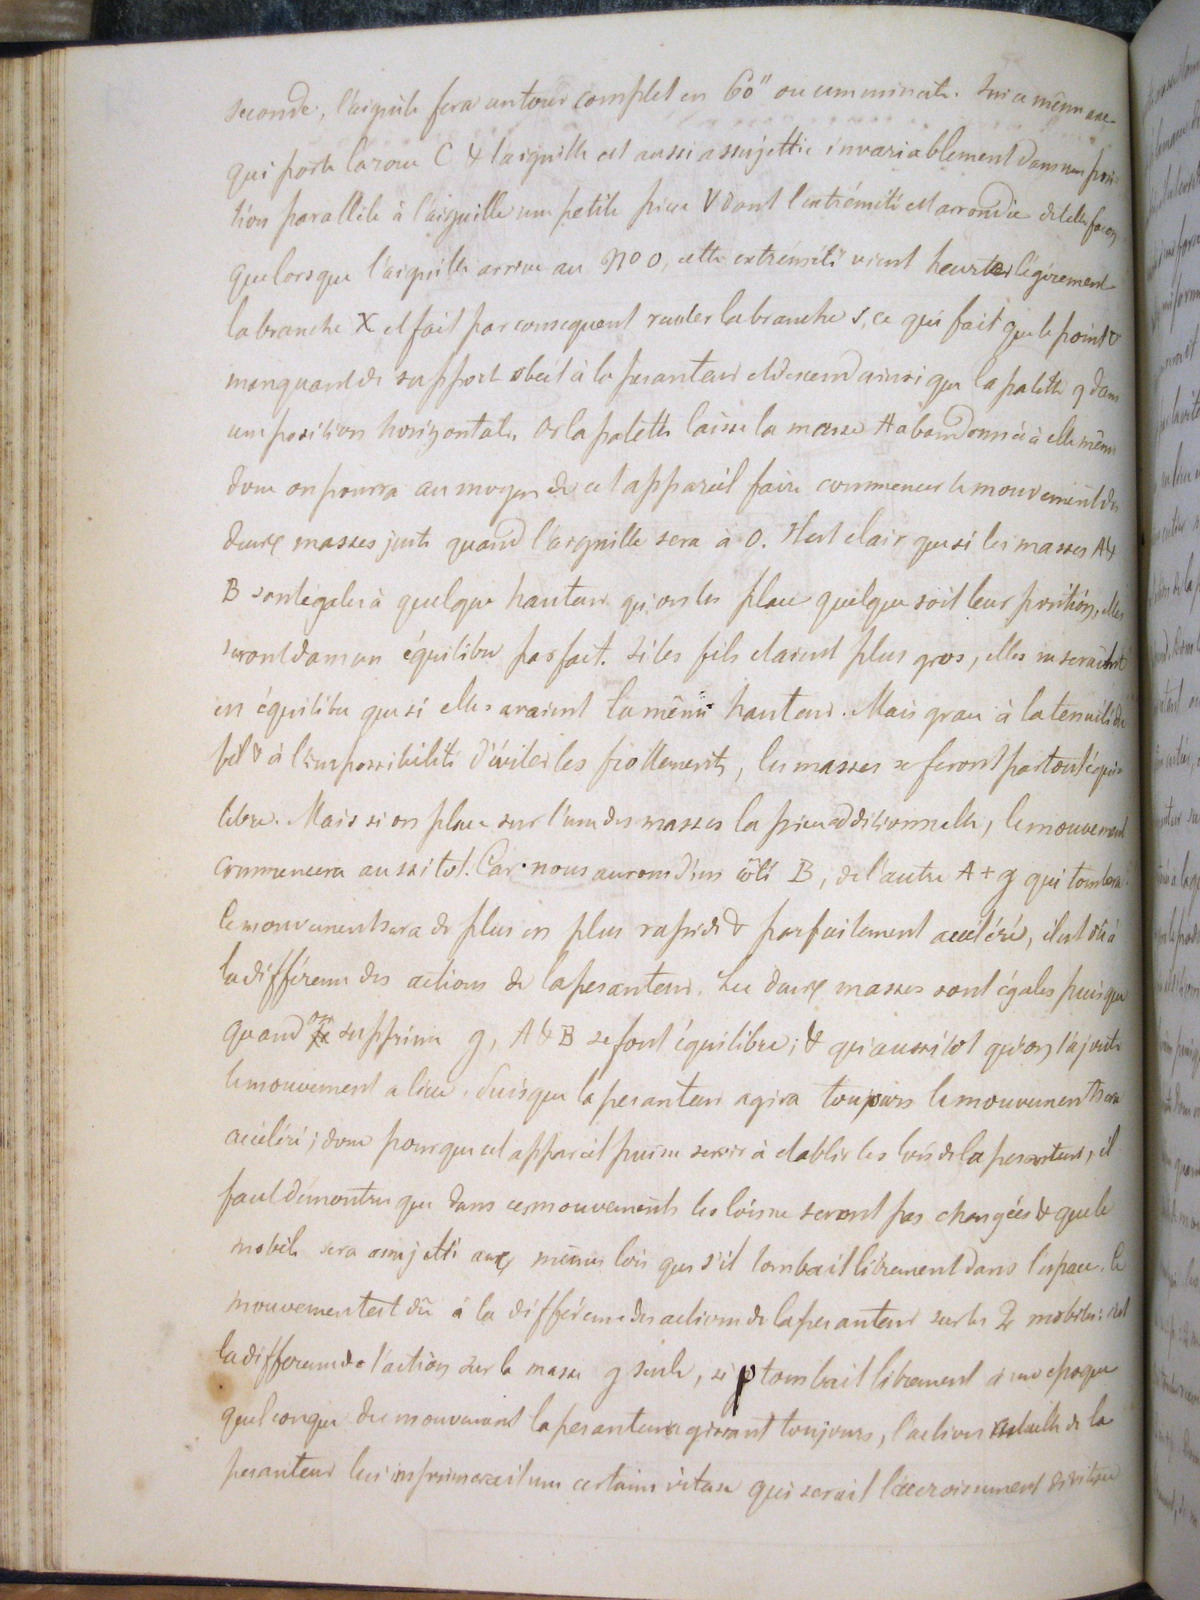 seconde, l'aiguille fera un tour complet en 60" ou une minute. Sur ce même axe
qui porte la roue C & l'aiguille est aussi assujettie invariablement dans une posi-
tion parallèle à l'aiguille une petite pièce V dont l'extrémité est arrondie de telle façon
que lorsque l'aiguille arrive au N° 0, cette extrémité vient heurter légèrement
la branche X et fait par conséquent reculer la branche s, ce qui fait que le point v
manquant de support obéit à la pesanteur et descend ainsi que la palette q dans
une position horizontale. Or la palette laisse la masse A abandonnée à elle même
donc on pourra au moyen de cet appareil faire commencer le mouvement des
deux masses juste quand l'aiguille sera à 0. Il est clair que si les masses A &
B sont égales à quelque hauteur qu'on les place quelque soit leur position, elles
seront dans un équilibre parfait. Si les fils étaient plus gros, elles ne seraient
en équilibre que si elles avaient la même hauteur. Mais grace à la tenuité du
fil & à l'impossibilité d'éviter les frottements, les masses se feront partout équi-
libre. Mais si on place sur l'une des masses la pièce additionnelle, le mouvement
commencera aussitot. Car nous aurons d'un côté B, de l'autre A + g qui tombera
le mouvement sera de plus en plus rapide & parfaitement accéléré, il est dû à
la différence des actions de la pesanteur. Les deux masses sont égales puisque
quand on supprime g, A & B se font équilibre; & qu'aussitot qu'on l'ajoute
le mouvement a lieu. Puisque la pesanteur agira toujours le mouvement sera
accéléré; donc pour que cet appareil puisse servir à etablir les lois de la pesanteur, il
faut démontrer que dans ces mouvements les lois ne seront pas changées & que le
mobile sera assujetti aux mêmes lois que s'il tombait librement dans l'espace. Le
mouvement est dû à la différence des actions de la pesanteur sur les 2 mobiles: c'est
la différence de l'action sur la masse g seule, si g tombait librement à une epoque
quelconque du mouvement la pesanteur agissant toujours, l'action actuelle de la
pesanteur lui imprimerait une certaine vitesse qui serait l'accroissement de vitesse